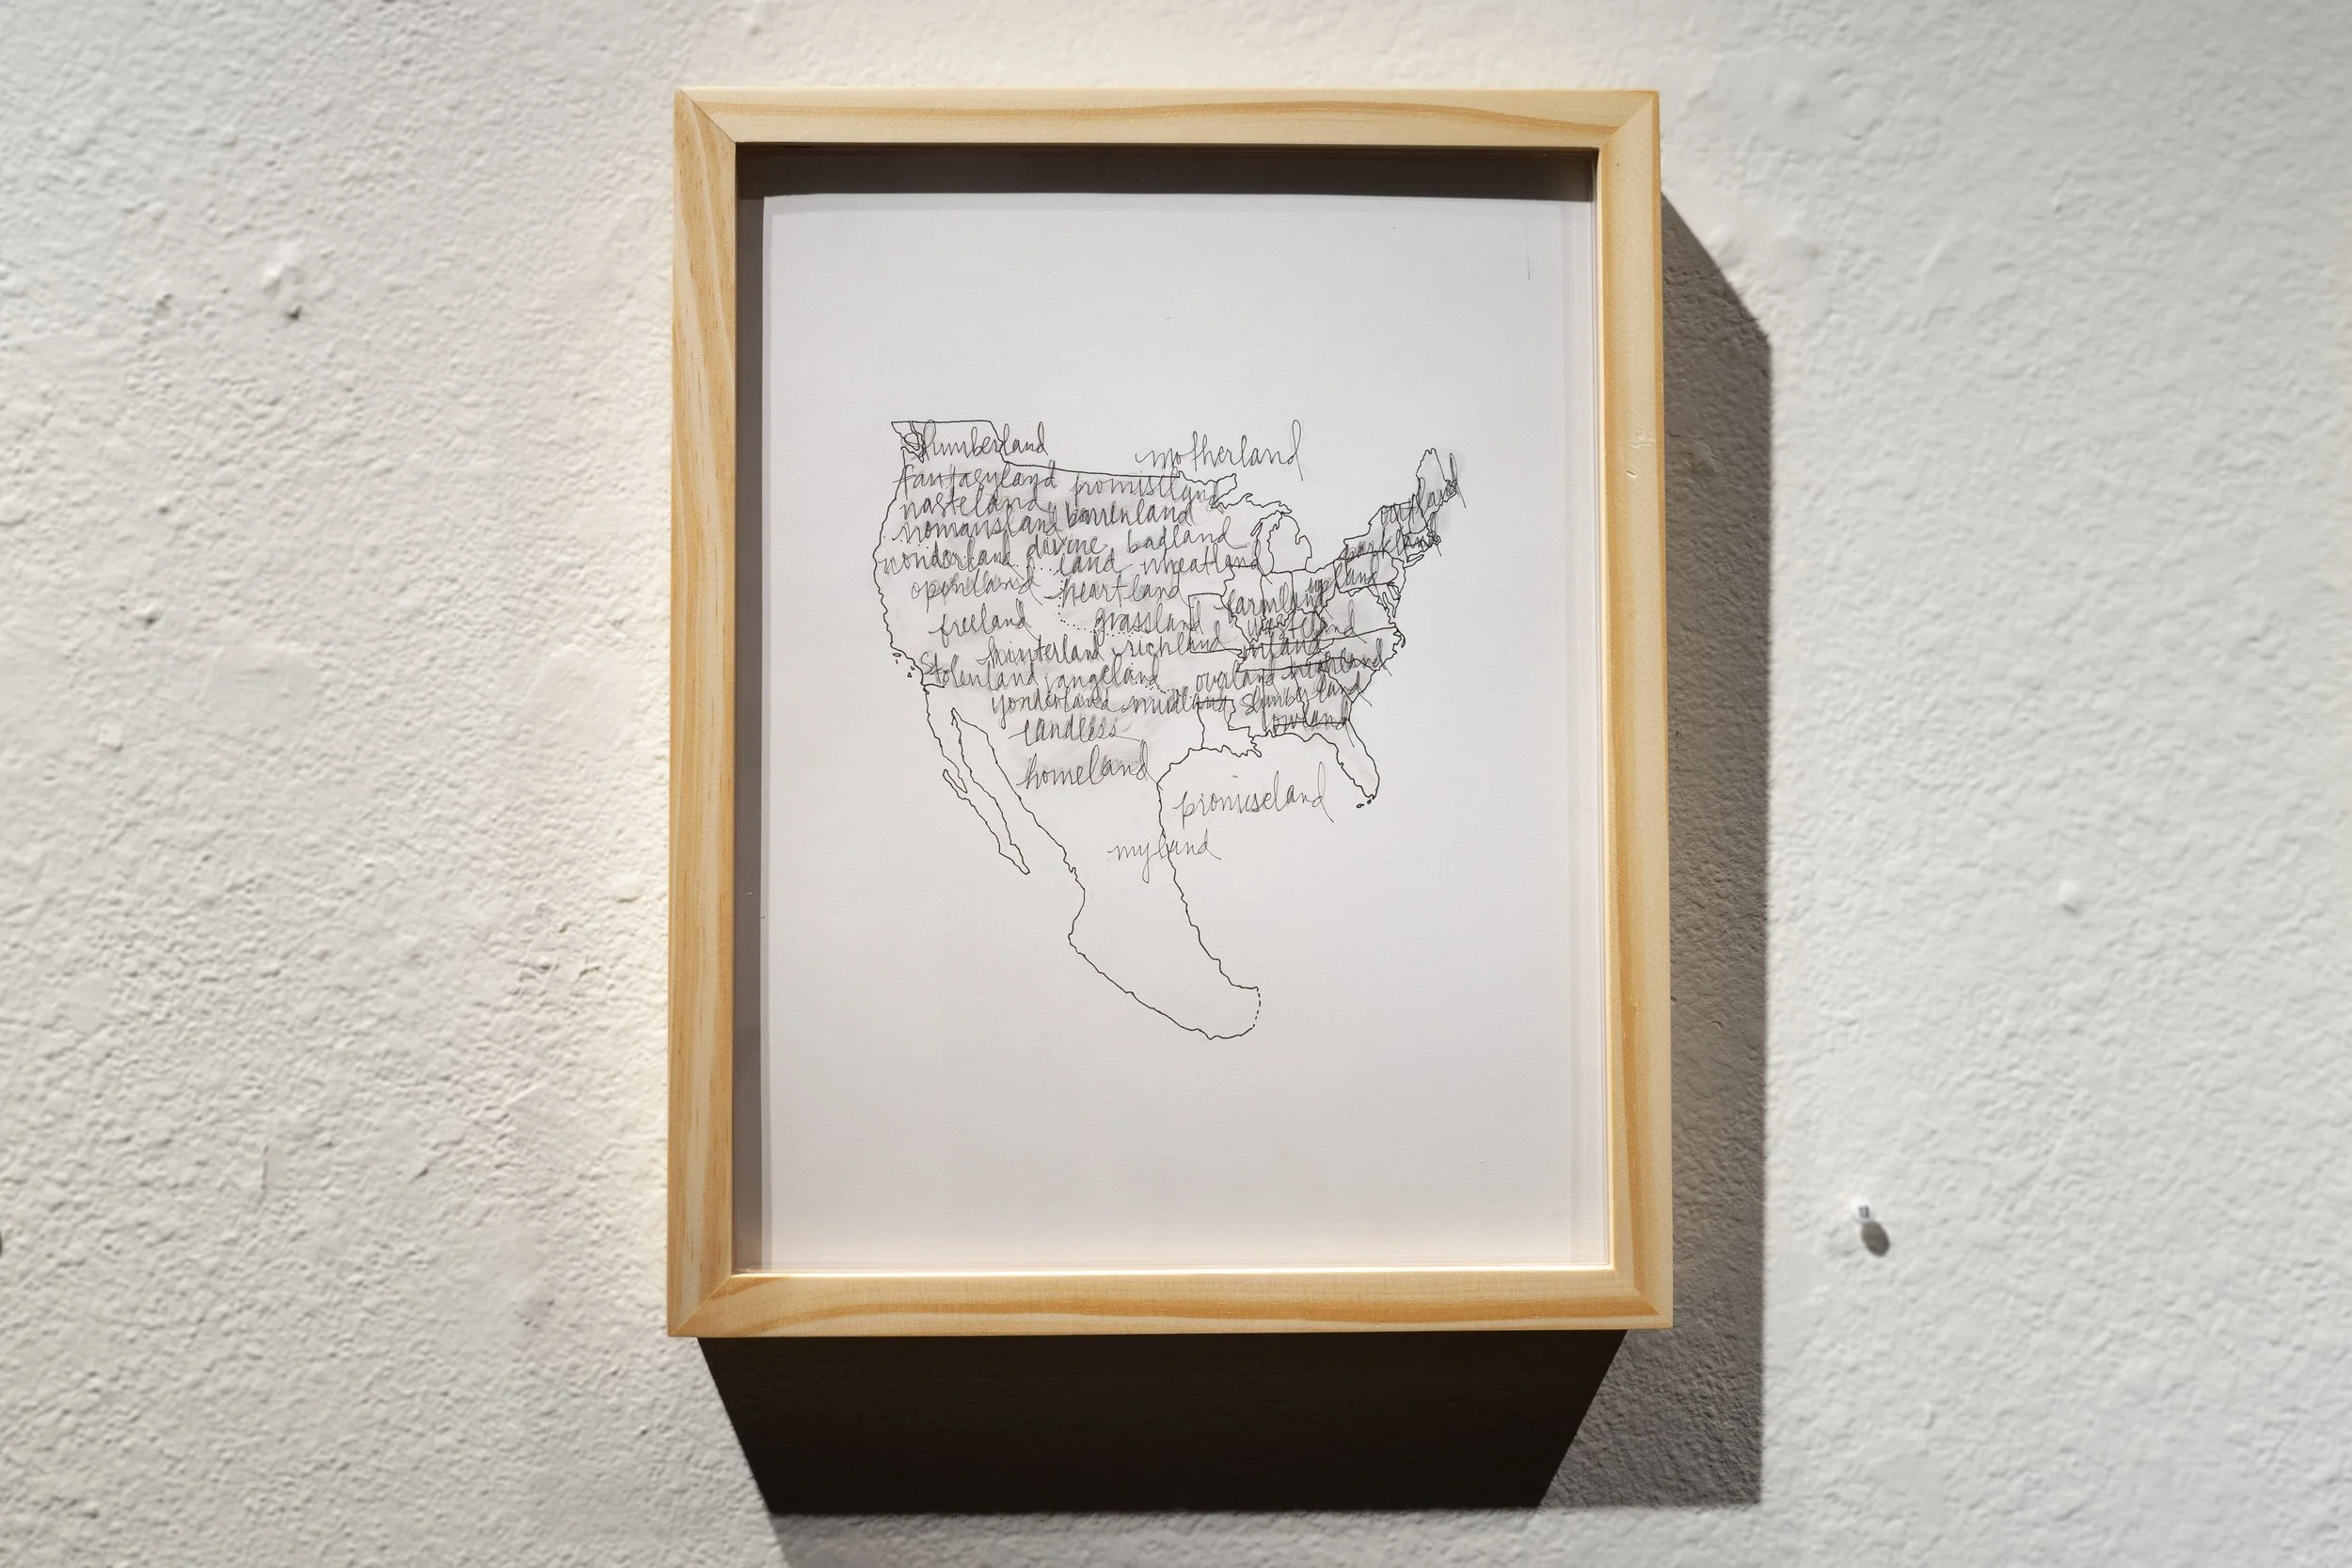 slumberland
motherland
fantasyland promiseland
wasteland
nomansland barrenland
outland
wonderland divine land badland
parkland
wheatland
openland heartland
upland
farmland
freeland grassland
wasteland
hinterland richland
inland
stolenland rangeland overland
yonderland midland slumberland
landless
lowland
homeland
promiseland
myland